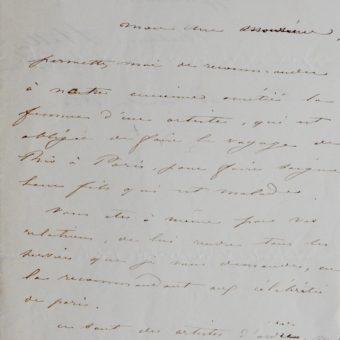 mon cher Monsieur,
permettez moi de recommander
à notre ancienne amitié la
femme d'une artiste, qui est
obligée de faire le voyage de
à Paris, pour faire soigner
leur fils qui est malade.
Vous êtes à même par vos
relations, de lui rendre tous les
services que je vous demande, en
la recommandant aux célébrités
de paris.
ce sont des artistes